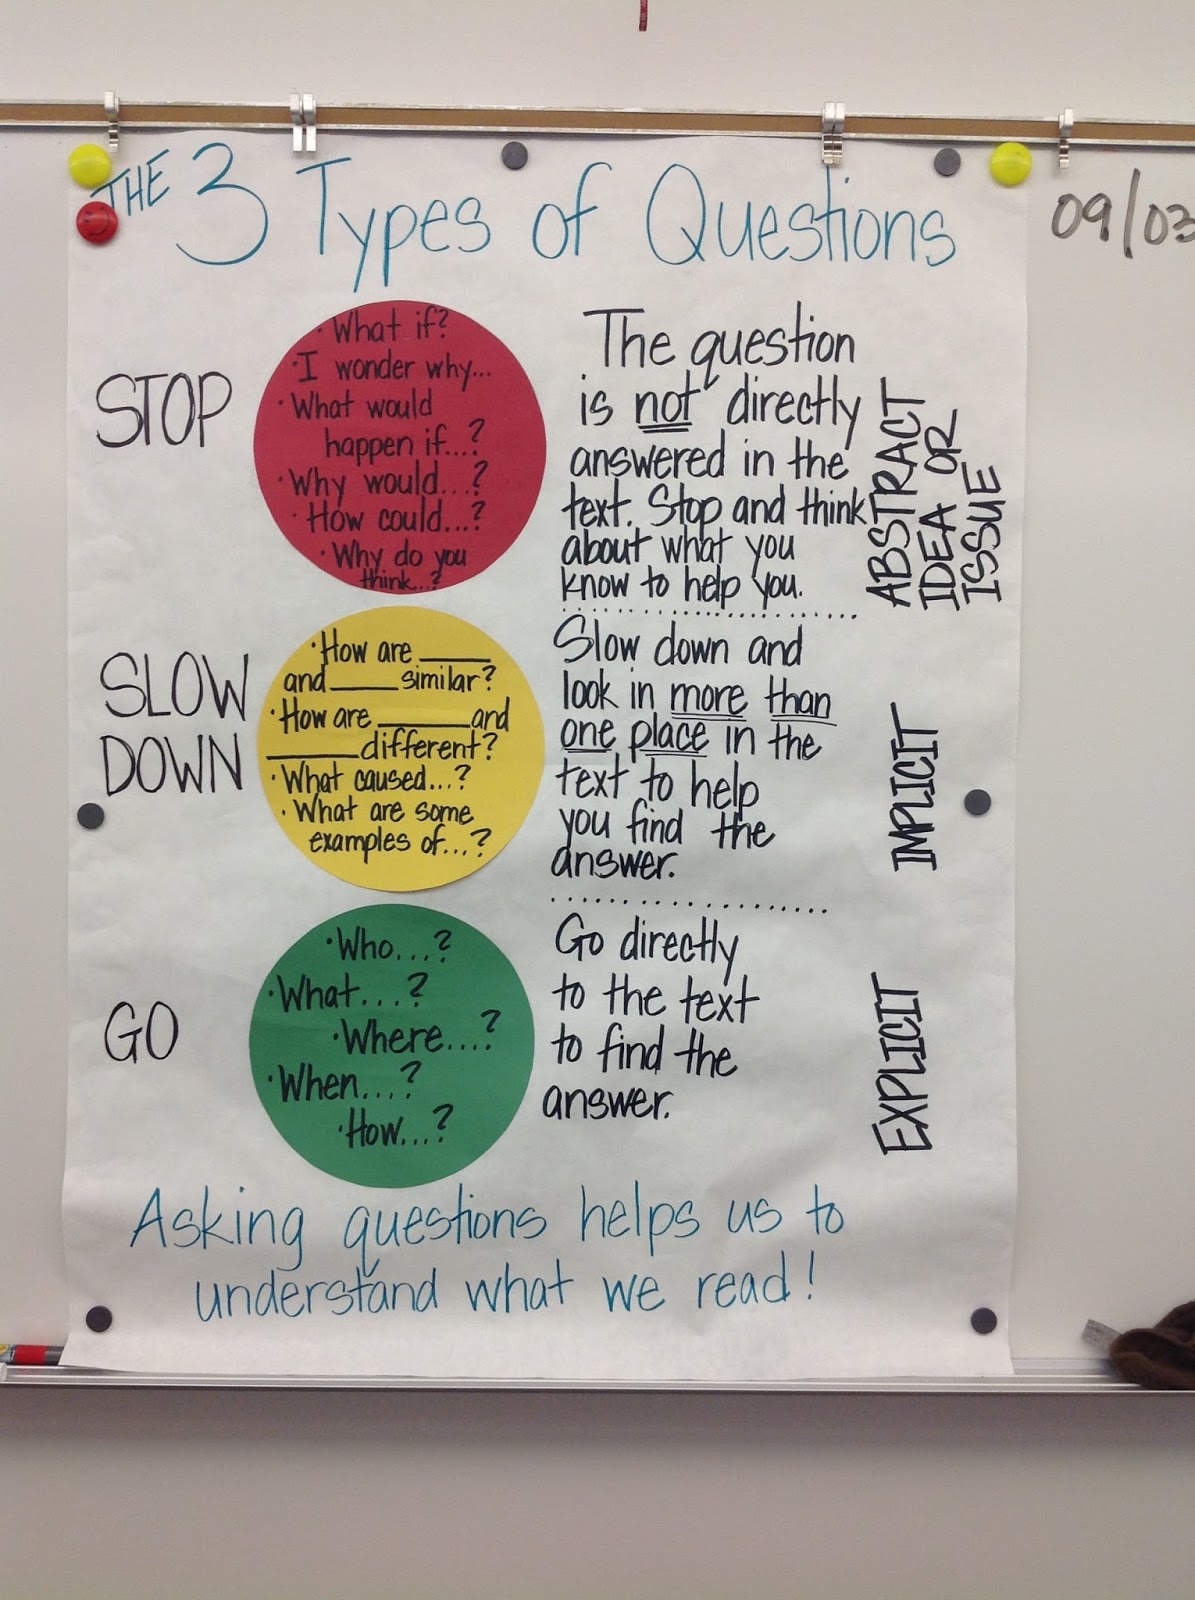 THE 3 Types of Questions
09/03
STOP
· What if?
· I wonder why...
· What would
happen if...?
· Why would...?
· How could...?
· Why do you
think...?
The question
is not directly
answered in the
text. Stop and think
about what you
know to help you.
ABSTRACT
IDEA OR
ISSUE
SLOW
DOWN
· How are ______
and _____ similar?
· How are _______ and
_______ different?
· What caused...?
· What are some
examples of...?
Slow down and
look in more than
one place in the
text to help
you find the
answer.
IMPLICIT
GO
· Who...?
· What....?
· Where....?
· When....?
· How...?
Go directly
to the text
to find the
answer.
EXPLICIT
Asking questions helps us to
understand what we read!